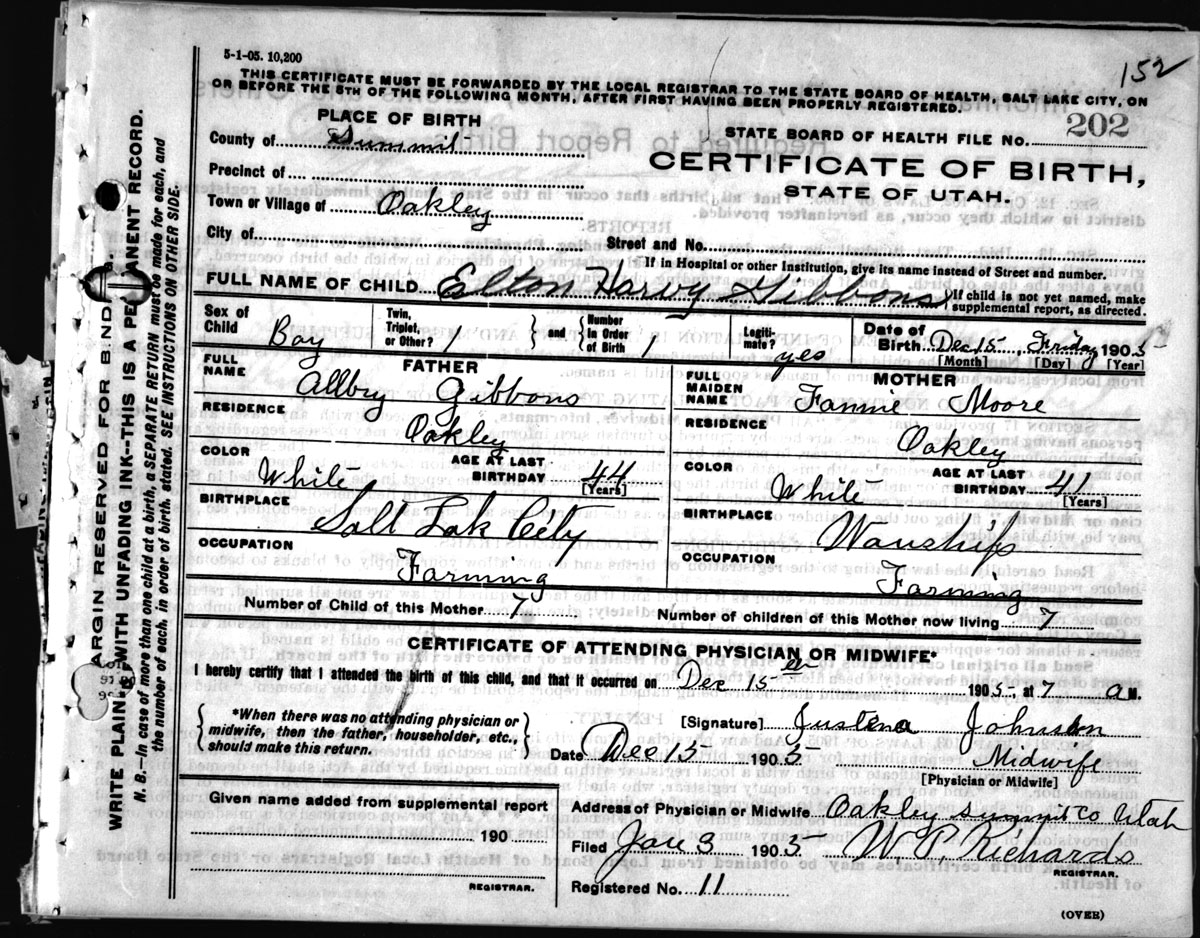 152
5-1-05. 10,200
THIS CERTIFICATE MUST BE FORWARDED BY THE LOCAL REGISTRAR TO THE STATE BOARD OF HEALTH, SALT LAKE CITY, ON
OR BEFORE THE 5TH OF THE FOLLOWING MONTH, AFTER FIRST HAVING BEEN PROPERLY REGISTERED.
PLACE OF BIRTH
County of Summit
Precinct of
Town or Village of Oakley
City of
STATE BOARD OF HEALTH FILE NO. 202
CERTIFICATE OF BIRTH,
STATE OF UTAH.
Street and No.
If in Hospital or other Institution, give its name instead of Street and number.
FULL NAME OF CHILD Elton Harvy Gibbons
If child is not yet named, make
supplemental report, as directed.
Sex of Child Boy
Twin, Triplet, or Other? 1 and Number in Order of Birth 1
Legiti-mate? yes
Date of Birth Dec 15, Friday 1905
[Month] [Day] [Year]
FATHER
FULL NAME Allbry Gibbons
RESIDENCE Oakley
COLOR White AGE AT LAST BIRTHDAY 44
[Years]
BIRTHPLACE Salt Lak City
OCCUPATION Farming
MOTHER
FULL MAIDEN NAME Fannie Moore
RESIDENCE Oakley
COLOR White AGE AT LAST BIRTHDAY 41
[Years]
BIRTHPLACE Wanship
OCCUPATION Farming
Number of Child of this Mother 7 Number of children of this Mother now living 7
CERTIFICATE OF ATTENDING PHYSICIAN OR MIDWIFE*
I hereby certify that I attended the birth of this child, and that it occurred on Dec 15th 1905 at 7 A M.
*When there was no attending physician or
midwife, then the father, householder, etc.,
should make this return.
[Signature] Justena Johnson
Date Dec 15 1905 Midwife
[Physician or Midwife]
Given name added from supplemental report
190
REGISTRAR.
Address of Physician or Midwife Oakley Summit Co Utah
Filed Jan 3 1905 W. P. Richards
REGISTRAR.
Registered No. 11
(OVER)
MARGIN RESERVED FOR BINDING.
WRITE PLAINLY WITH UNFADING INK--THIS IS A PERMANENT RECORD.
N. B.—In case of more than one child at a birth, a SEPARATE RETURN must be made for each, and
the number of each, in order of birth, stated. SEE INSTRUCTIONS ON OTHER SIDE.